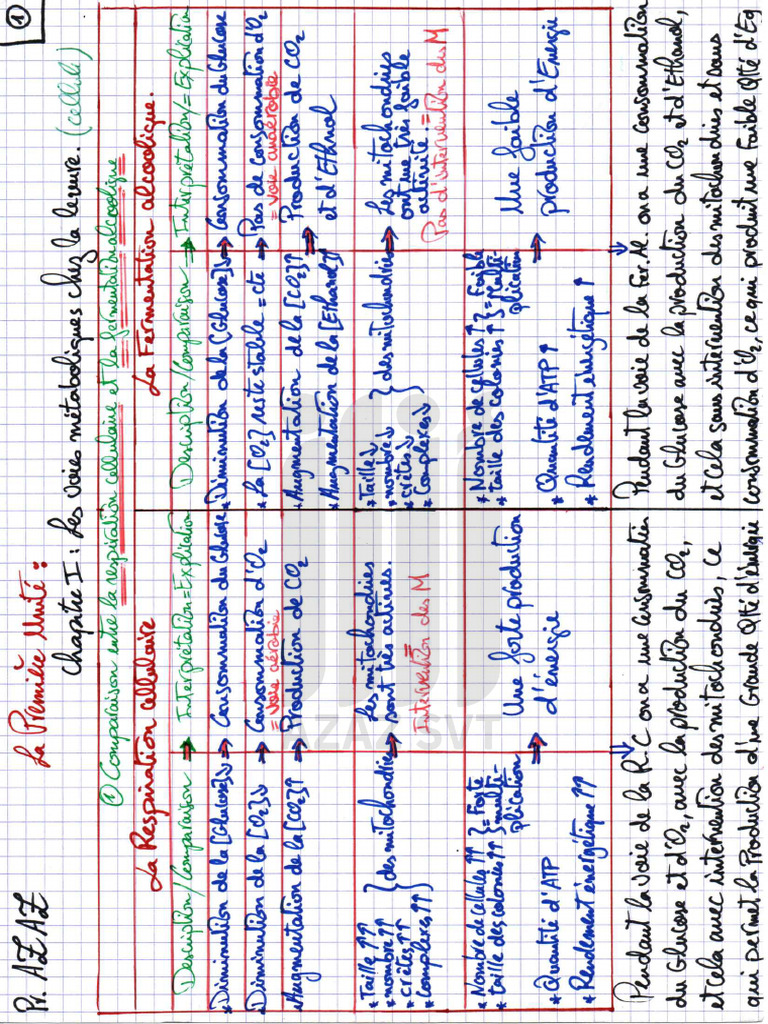 Pr. AZAZ
La Première Unité :
①
Chapitre I : Les voies métaboliques chez la levure. (cellule)
① Comparaison entre la respiration cellulaire et la fermentation alcoolique
La Respiration cellulaire
La Fermentation alcoolique.
Description/Comparaison → Interprétation=Explication
Description/Comparaison → Interprétation=Explication
* Diminution de la [Glucose]↓ ⇒ Consommation du Glucose
* Diminution de la [Glucose]↓ ⇒ Consommation du Glucose
* Diminution de la [O2]↓ ⇒ Consommation d'O2
= voie aérobie
* La [O2] reste stable = cte ⇒ Pas de Consommation d'O2
= voie anaérobie
* Augmentation de la [CO2]↑ ⇒ Production de CO2
* Augmentation de la [CO2]↑
* Augmentation de la [Ethanol]↑
⇒ Production de CO2
et d'Ethnol
* Taille ↑↑
* nombre ↑↑
* crêtes ↑↑
* Complexes ↑↑
} des mitochondrie ⇒
Les mitochondries
sont très actives.
Intervention des M
* Taille ↓
* nombre ↓
* crêtes ↓
* Complexes ↓
} des mitochondrie ⇒
Les mitochondries
ont une très faible
activité. =
Pas d'intervention des M
* Nombre de cellules ↑↑
* taille des colonies ↑↑
} = Forte
multi-
plication
* Quantité d'ATP
* Rendement énergétique ↑↑
⇒ Une forte production
d'énergie
* Nombre de cellules ↑
* taille des colonies ↑
} = Faible
multi-
plication
* Quantité d'ATP ↑
* Rendement énergétique ↑
⇒ Une faible
production d'Energie
Pendant la voie de la R.C on a une consommation
du Glucose et d'O2, avec la production du CO2,
et cela avec intervention des mitochondries, ce
qui permet la Production d'une Grande Qté d'énergie
Pendant la voie de la Fer. Al. on a une consommation
du Glucose avec la production du CO2 et d'Ethanol,
et Cela sans intervention des mitochondries et sans
consommation d'O2, ce qui produit une Faible Qté d'Eg
AZAZ SVT